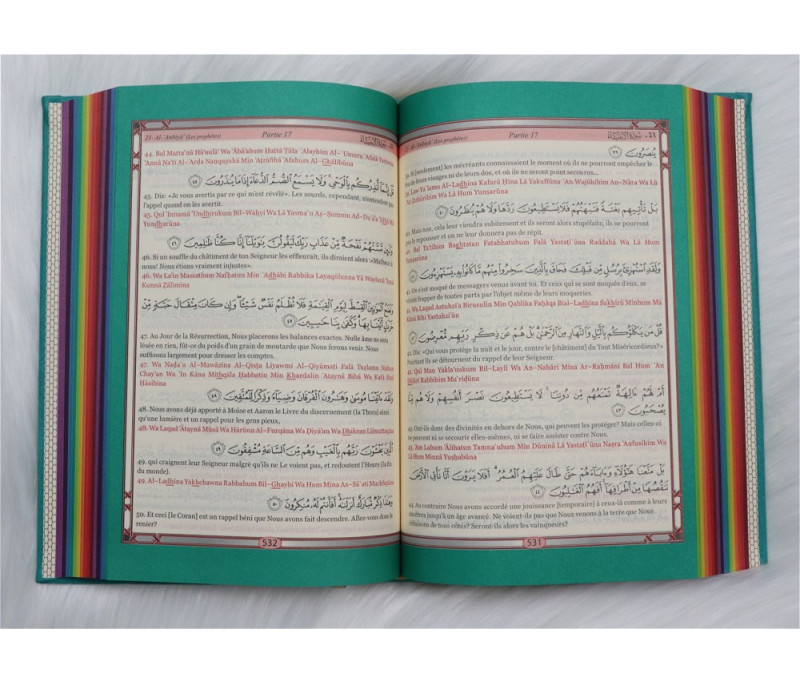 21- Al-Anbiyâ' (Les prophètes) Partie 17
يُنصَرُونَ ٣٩
39. Si [seulement] les mécréants connaissaient le moment où ils ne pourront empêcher le
feu de leurs visages ni de leurs dos, et où ils ne seront point secourus...
بَلْ تَأْتِيهِم بَغْتَةً فَتَبْهَتُهُمْ فَلَا يَسْتَطِيعُونَ رَدَّهَا وَلَا هُمْ يُنظَرُونَ ٤٠
40. Mais non, cela leur viendra subitement et ils seront alors stupéfaits; ils ne pourront
pas le repousser et on ne leur donnera pas de répit.
40. Bal Ta'tīhim Baghtatan Fatabhatuhum Falā Yastaţī`ūna Raddahā Wa Lā Hum
Yunžarūna
وَلَقَدِ ٱسْتُهْزِئَ بِرُسُلٍ مِّن قَبْلِكَ فَحَاقَ بِٱلَّذِينَ سَخِرُوا۟ مِنْهُم مَّا كَانُوا۟ بِهِۦ يَسْتَهْزِءُونَ
de messagers venus avant toi. Et ceux qui se sont moqués d'eux, se
virent frapper de toutes parts par l'objet même de leurs moqueries.
41. Wa Laqad Astuhzi'a Birusulin Min Qablika Faĥāqa Bial-Ladhīna Sakhirū Minhum Mā
Kānū Bihi Yastahzi'ūn
قُلْ مَن يَكْلَؤُكُم بِٱلَّيْلِ وَٱلنَّهَارِ مِنَ ٱلرَّحْمَٰنِ بَلْ هُمْ عَن ذِكْرِ رَبِّهِم مُّعْرِضُونَ
42. Dis: «Qui vous protège la nuit et le jour, contre le [châtiment] du Tout Miséricordieux?»
Pourtant ils se détournent du rappel de leur Seigneur.
42. Qul Man Yakla'uukum Bil-Layli Wa An-Nahāri Mina Ar-Raĥmāni Bal Hum `An
Dhikri Rabbihim Mu`riđūna
أَمْ لَهُمْ ءَالِهَةٌ تَمْنَعُهُم مِّن دُونِنَا لَا يَسْتَطِيعُونَ نَصْرَ أَنفُسِهِمْ وَلَا هُم مِّنَّا
يُصْحَبُونَ ٤٣
43. Ont-ils donc des divinités en dehors de Nous, qui peuvent les protéger? Mais celles-ci
ne peuvent ni se secourir elles-mêmes, ni se faire assister contre Nous.
43. 'Am Lahum 'Ālihatun Tamna`uhum Min Dūninā Lā Yastaţī`ūna Naşra 'Anfusihim Wa
Lā Hum Minnā Yuşĥabūna
بَلْ مَتَّعْنَا هَٰٓؤُلَآءِ وَءَابَآءَهُمْ حَتَّىٰ طَالَ عَلَيْهِمُ ٱلْعُمُرُ أَفَلَا يَرَوْنَ أَنَّا نَأْتِى ٱلْأَرْضَ
نَنقُصُهَا مِنْ أَطْرَافِهَآ أَفَهُمُ ٱلْغَٰلِبُونَ ٤٤
44. Au contraire Nous avons accordé une jouissance [temporaire] à ceux-là comme à leurs
ancêtres jusqu'à un âge avancé. Ne voient-ils pas que Nous venons à la terre que Nous
réduisons de tous côtés? Seront-ils alors les vainqueurs?
531
21- Al-Anbiyâ' (Les prophètes) Partie 17
44. Bal Matta`nā Hā'uulā' Wa 'Ābā'ahum Ĥattá Ţāla `Alayhimu Al-`Umuru
'Annā Na'tī Al-'Arđa Nanquşuhā Min 'Aţrāfihā 'Afahumu Al-Ghālibūna
قُلْ إِنَّمَآ أُنذِرُكُم بِٱلْوَحْىِ وَلَا يَسْمَعُ ٱلصُّمُّ ٱلدُّعَآءَ إِذَا مَا يُنذَرُونَ ٤٥
45. Dis: «Je vous avertis par ce qui m'est révélé». Les sourds, cependant, n'entendent pas
l'appel quand on les avertit.
45. Qul 'Innamā 'Undhirukum Bil-Waĥyi Wa Lā Yasma`u Aş-Şummu Ad-Du`ā'a 'Idhā Mā
Yundharūna
وَلَئِن مَّسَّتْهُمْ نَفْحَةٌ مِّنْ عَذَابِ رَبِّكَ لَيَقُولُنَّ يَٰوَيْلَنَآ إِنَّا كُنَّا ظَٰلِمِينَ ٤٦
46. Si un souffle du châtiment de ton Seigneur les effleurait, ils diraient alors «Malheur à
nous! Nous étions vraiment injustes».
46. Wa La'in Massathum Nafĥatun Min `Adhābi Rabbika Layaqūlunna Yā Waylanā 'Innā
Kunnā Žālimīna
وَنَضَعُ ٱلْمَوَٰزِينَ ٱلْقِسْطَ لِيَوْمِ ٱلْقِيَٰمَةِ فَلَا تُظْلَمُ نَفْسٌ شَيْـًٔا وَإِن كَانَ مِثْقَالَ حَبَّةٍ مِّنْ
خَرْدَلٍ أَتَيْنَا بِهَا وَكَفَىٰ بِنَا حَٰسِبِينَ ٤٧
47. Au Jour de la Résurrection, Nous placerons les balances exactes. Nulle âme ne sera
lésée en rien, fût-ce du poids d'un grain de moutarde que Nous ferons venir. Nous
suffisons largement pour dresser les comptes.
47. Wa Nađa`u Al-Mawāzīna Al-Qisţa Liyawmi Al-Qiyāmati Falā Tužlamu Nafsun
Chay'an Wa 'In Kāna Mithqāla Ĥabbatin Min Khardalin 'Ataynā Bihā Wa Kafá Binā
Ĥāsibīna
وَلَقَدْ ءَاتَيْنَا مُوسَىٰ وَهَٰرُونَ ٱلْفُرْقَانَ وَضِيَآءً وَذِكْرًا لِّلْمُتَّقِينَ ٤٨
48. Nous avons déjà apporté à Moïse et Aaron le Livre du discernement (la Thora) ainsi
qu'une lumière et un rappel pour les gens pieux,
48. Wa Laqad 'Ātaynā Mūsá Wa Hārūna Al-Furqāna Wa Điyā'an Wa Dhikran Lilmuttaqīn
ٱلَّذِينَ يَخْشَوْنَ رَبَّهُم بِٱلْغَيْبِ وَهُم مِّنَ ٱلسَّاعَةِ مُشْفِقُونَ ٤٩
49. qui craignent leur Seigneur malgré qu'ils ne Le voient pas, et redoutent l'Heure (la fin
du monde).
49. Al-Ladhīna Yakhchawna Rabbahum Bil-Ghaybi Wa Hum Mina As-Sā`ati Muchfiqūn
وَهَٰذَا ذِكْرٌ مُّبَارَكٌ أَنزَلْنَٰهُ أَفَأَنتُمْ لَهُۥ مُنكِرُونَ ٥٠
50. Et ceci [le Coran] est un rappel béni que Nous avons fait descendre. Allez vous donc le
renier?
532